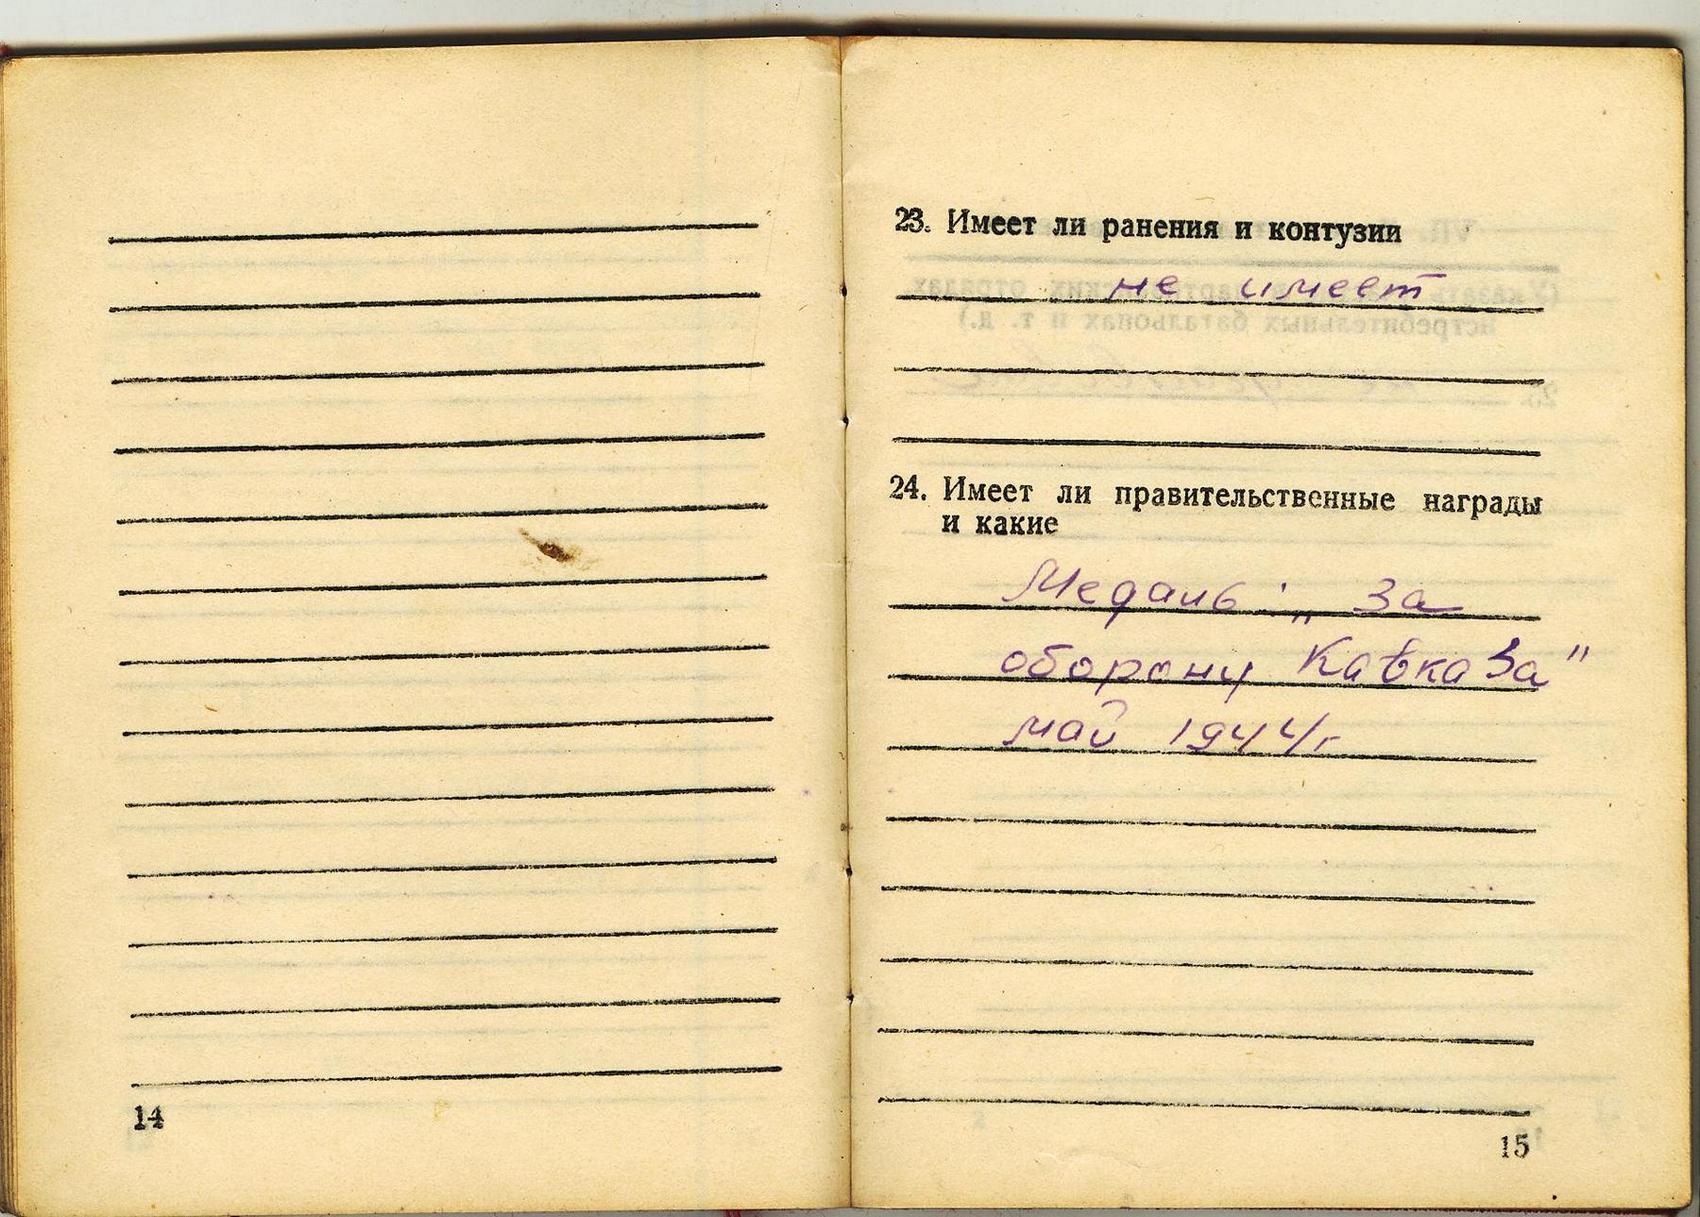 14
23. Имеет ли ранения и контузии
не имеет
24. Имеет ли правительственные награды
и какие
Медаль: „За
оборону Кавказа"
май 1944г
15